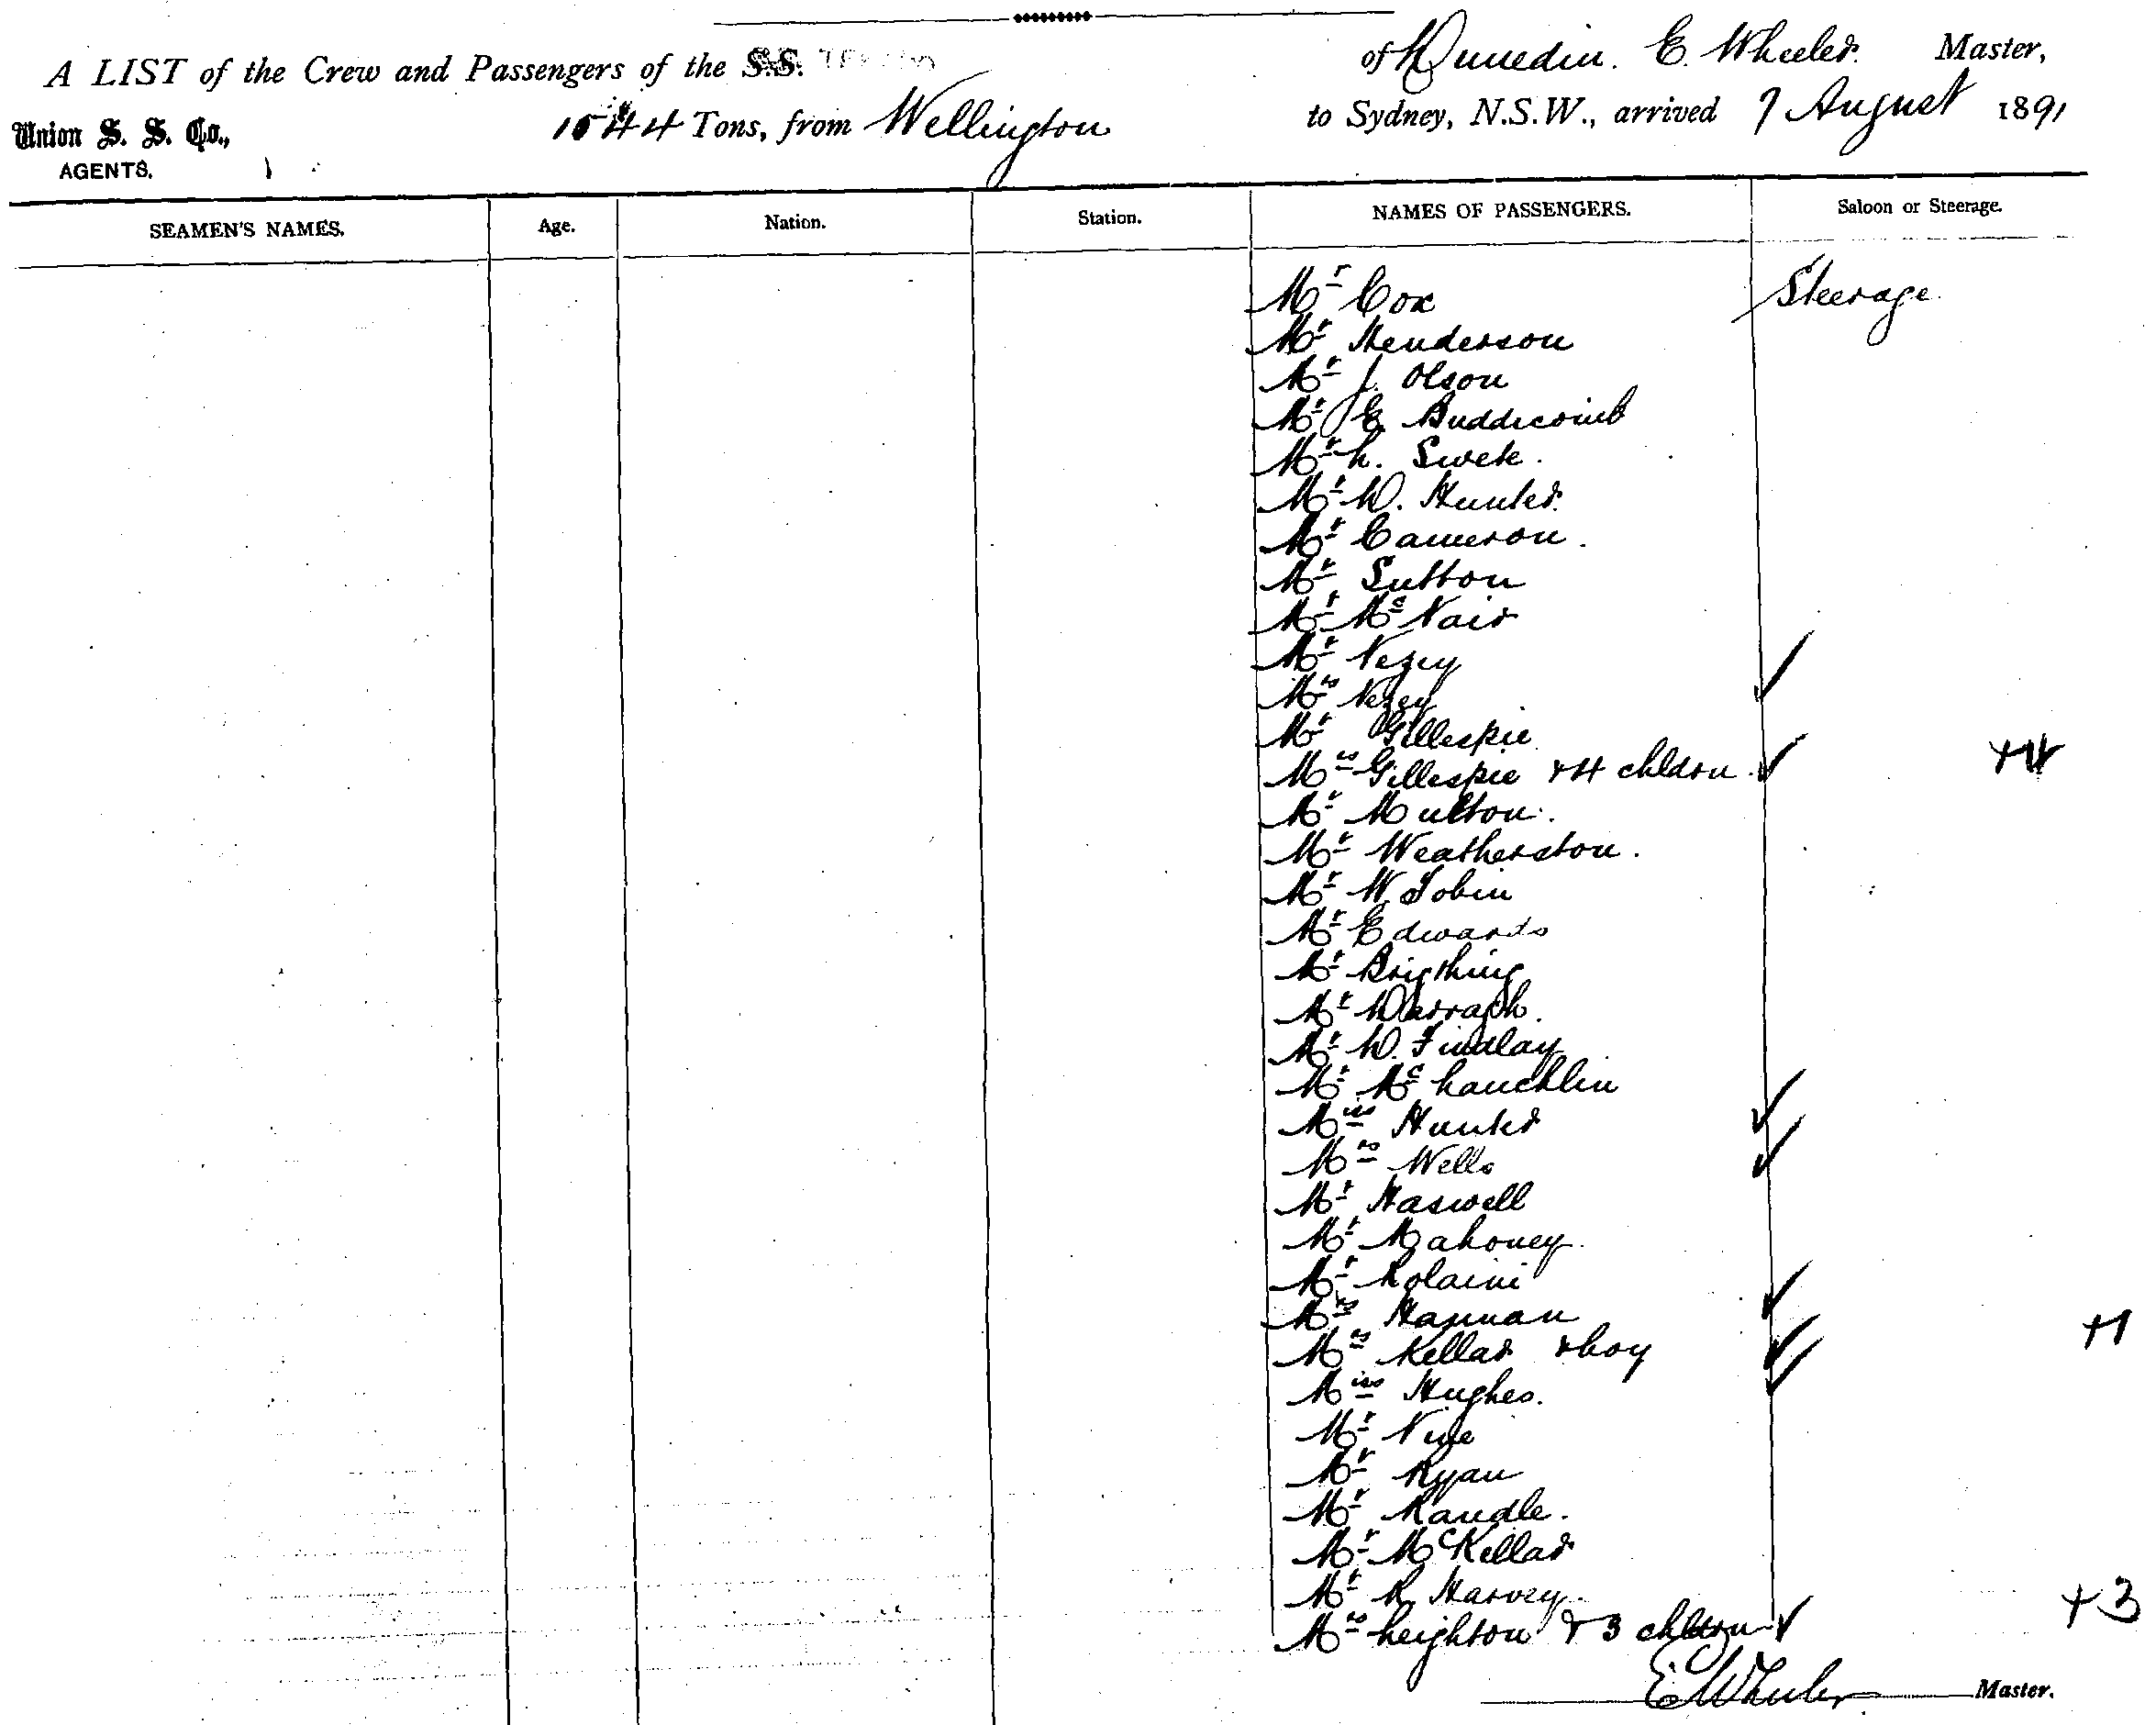 A LIST of the Crew and Passengers of the S.S. of Dunedin. E. Wheeler. Master,
Union S. S. Co., 1544 Tons, from Wellington to Sydney, N.S.W., arrived 7 August 1891
AGENTS.
SEAMEN'S NAMES. Age. Nation. Station. NAMES OF PASSENGERS. Saloon or Steerage.
Mr Cox Steerage
Mr Henderson
Mr J. Olson
Mr E. Buddicomb
Mr L. Swete.
Mr W. Hunter
Mr Cameron.
Mr Sutton
Mr Mc Nair
Mr Vezey ✓
Mrs Vezey
Mr Gillespie
Mrs Gillespie & 4 chldrn ✓ +4
Mr Multon.
Mr Weatherston.
Mr W. Tobin
Mr Edwards
Mr
Mr Darragh.
Mr D. Findlay
Mr Mc Lauchlin
Miss Hunter ✓
Mrs Wells ✓
Mr Haswell
Mr Mahoney.
Mr Rolaini
Mrs Hannan ✓
Mrs Kellar & boy ✓ +1
Miss Hughes. ✓
Mr
Mr Ryan
Mr Randle.
Mr McKellar
Mr R. Harvey.
Mrs Leighton & 3 chldrn ✓ +3
E Wheeler Master.